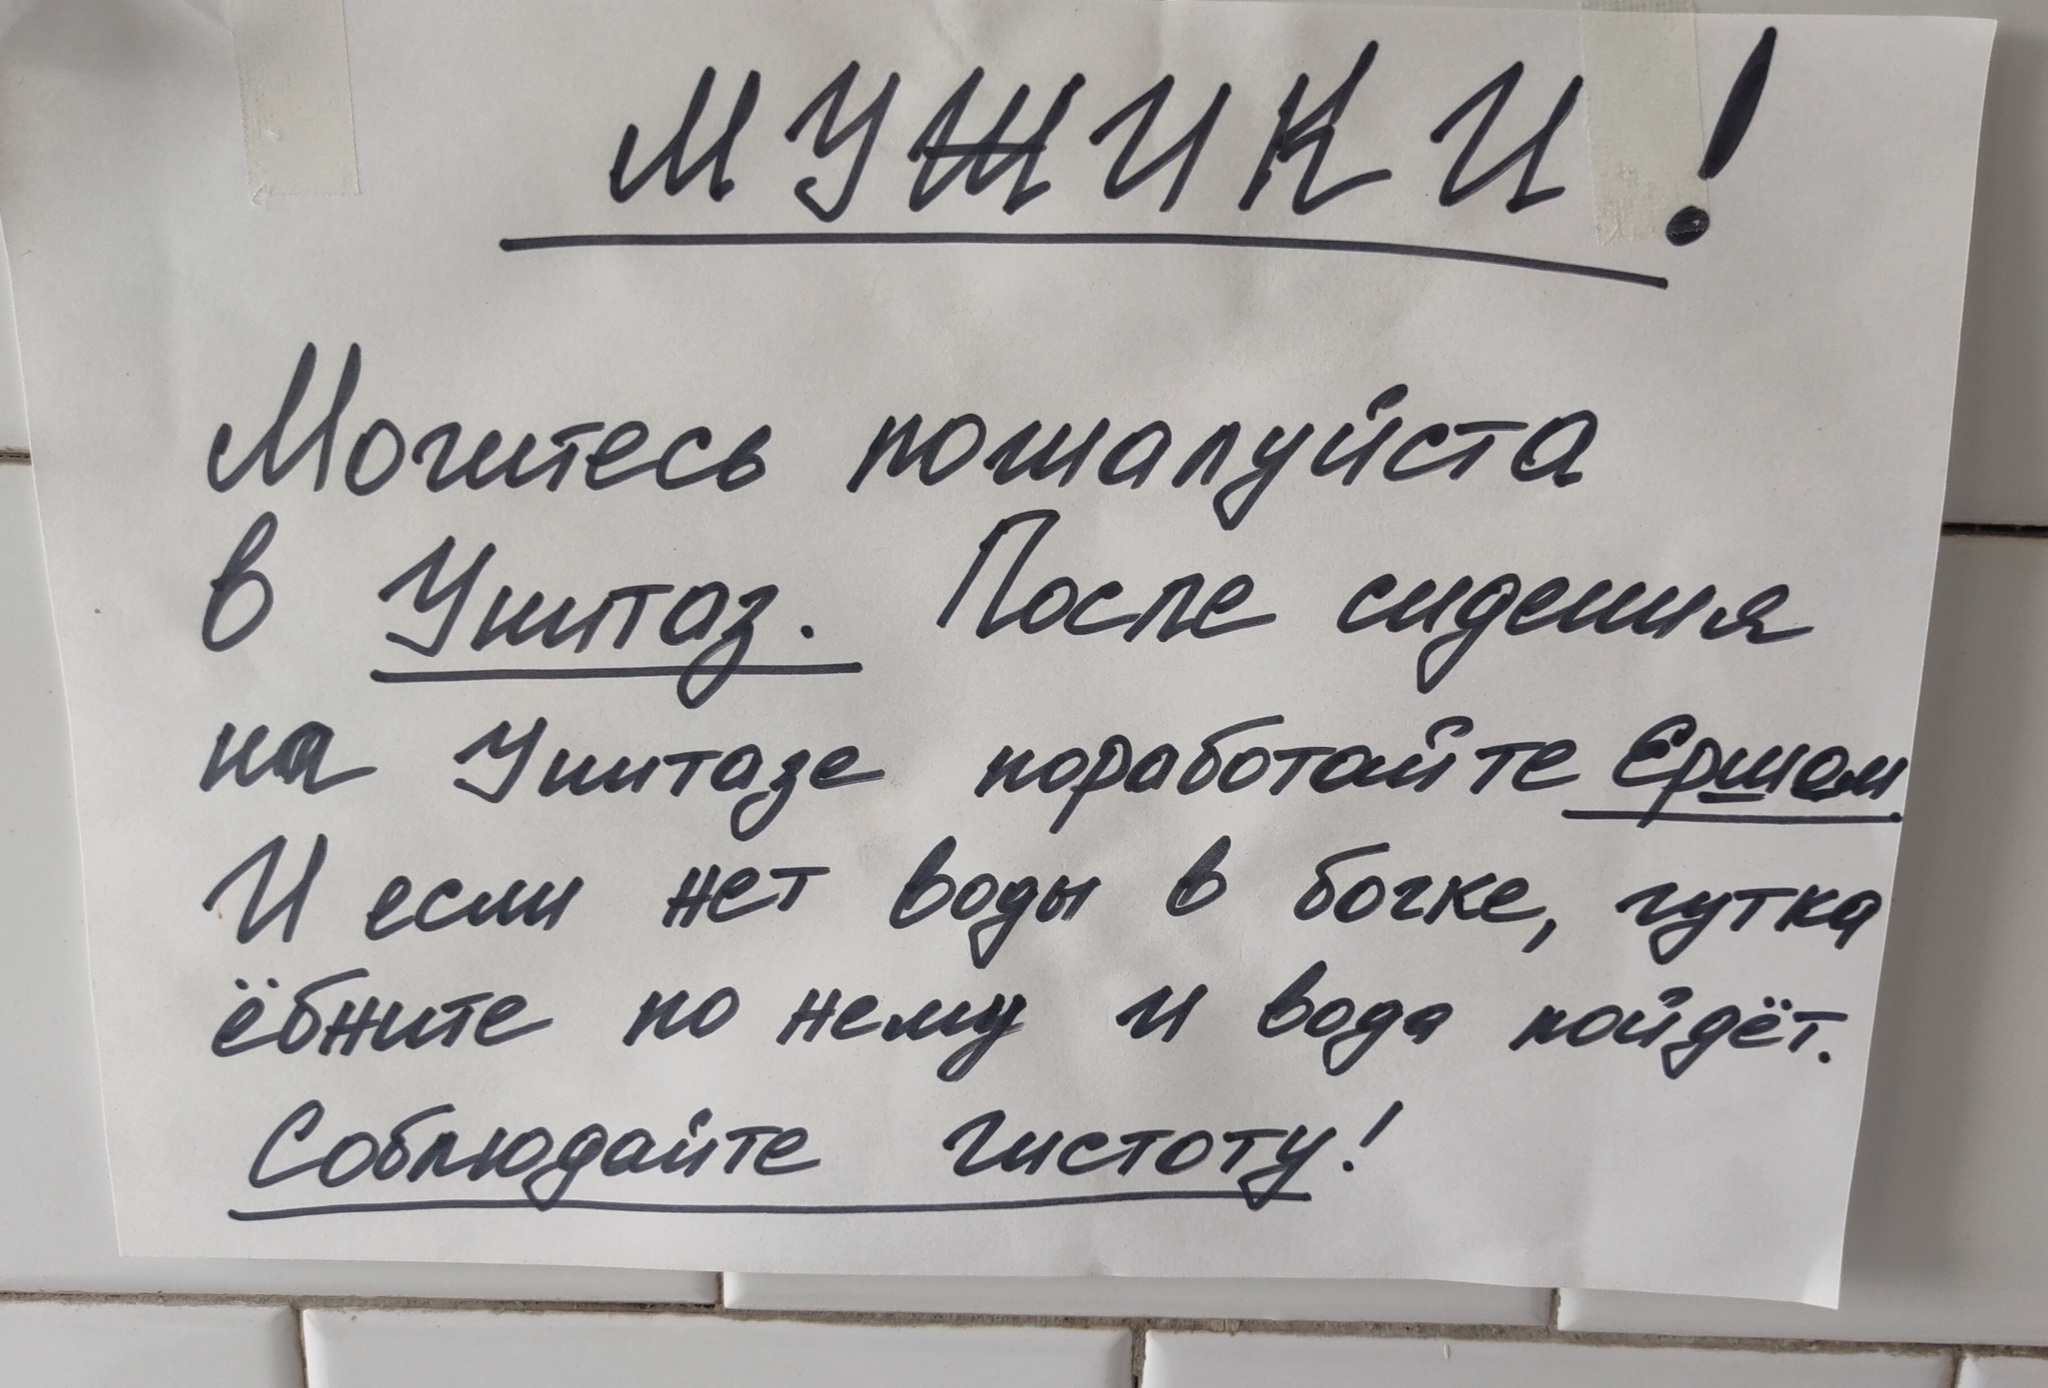 МУЖИКИ!
Мочитесь пожалуйста
в Унитаз. После сидения
на Унитазе поработайте Ершом
И если нет воды в бочке, чутка
ёбните по нему и вода пойдёт.
Соблюдайте чистоту!